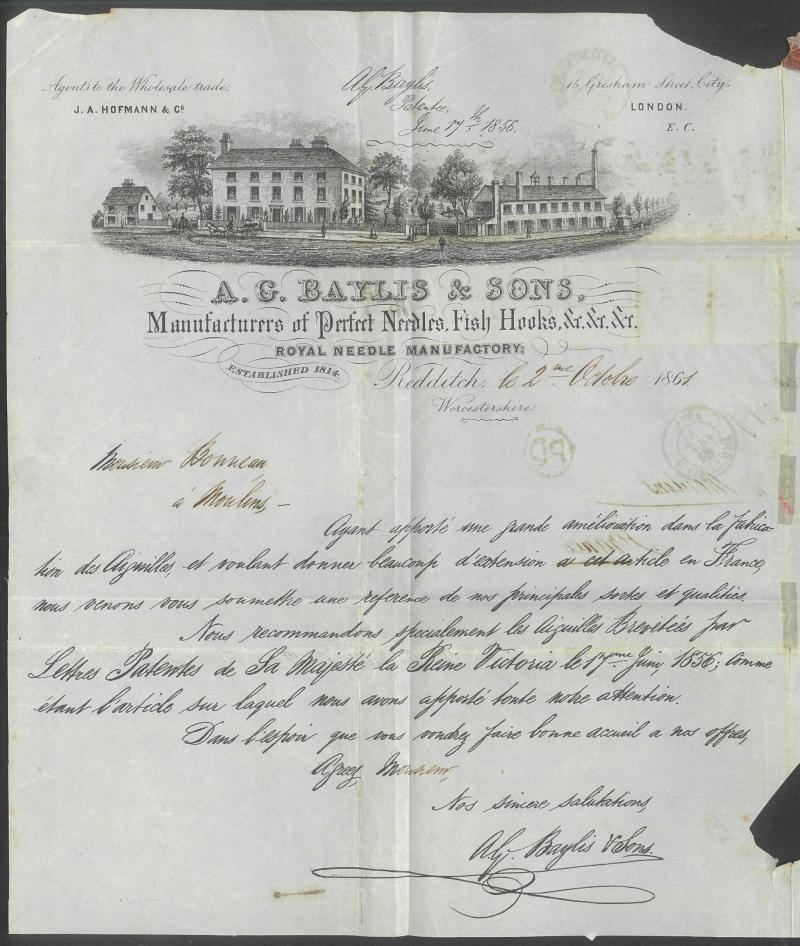 Agents to the Wholesale trade.
J. A. HOFMANN & Co
Alf. Baylis,
Patentee,
June 17th 1856.
15 Gresham Street, City.
LONDON.
E. C.
A. G. BAYLIS & SONS,
Manufacturers of Perfect Needles, Fish Hooks, &c. &c. &c.
ROYAL NEEDLE MANUFACTORY;
ESTABLISHED 1814.
Redditch, le 2me Octobre 1861
Worcestershire.
PD
Monsieur Bonneau
à Moulins, -
Ayant apporté une grande amélioration dans la fabrica-
tion des Aiguilles, et voulant donner beaucoup d'extension a cet article en France,
nous venons vous soumettre une reference de nos principales sortes et qualities.
Nous recommandons specialement les Aiguilles Brevetées par
Lettres Patentes de Sa Majesté la Reine Victoria le 17eme Juin, 1856; comme
étant l'article sur laquel nous avons apporté toute notre attention.
Dans l'espoir que vous voudrez faire bonne accueil a nos offres,
Agreez, Monsieur,
Nos sincere salutations,
Alf. Baylis & Sons.